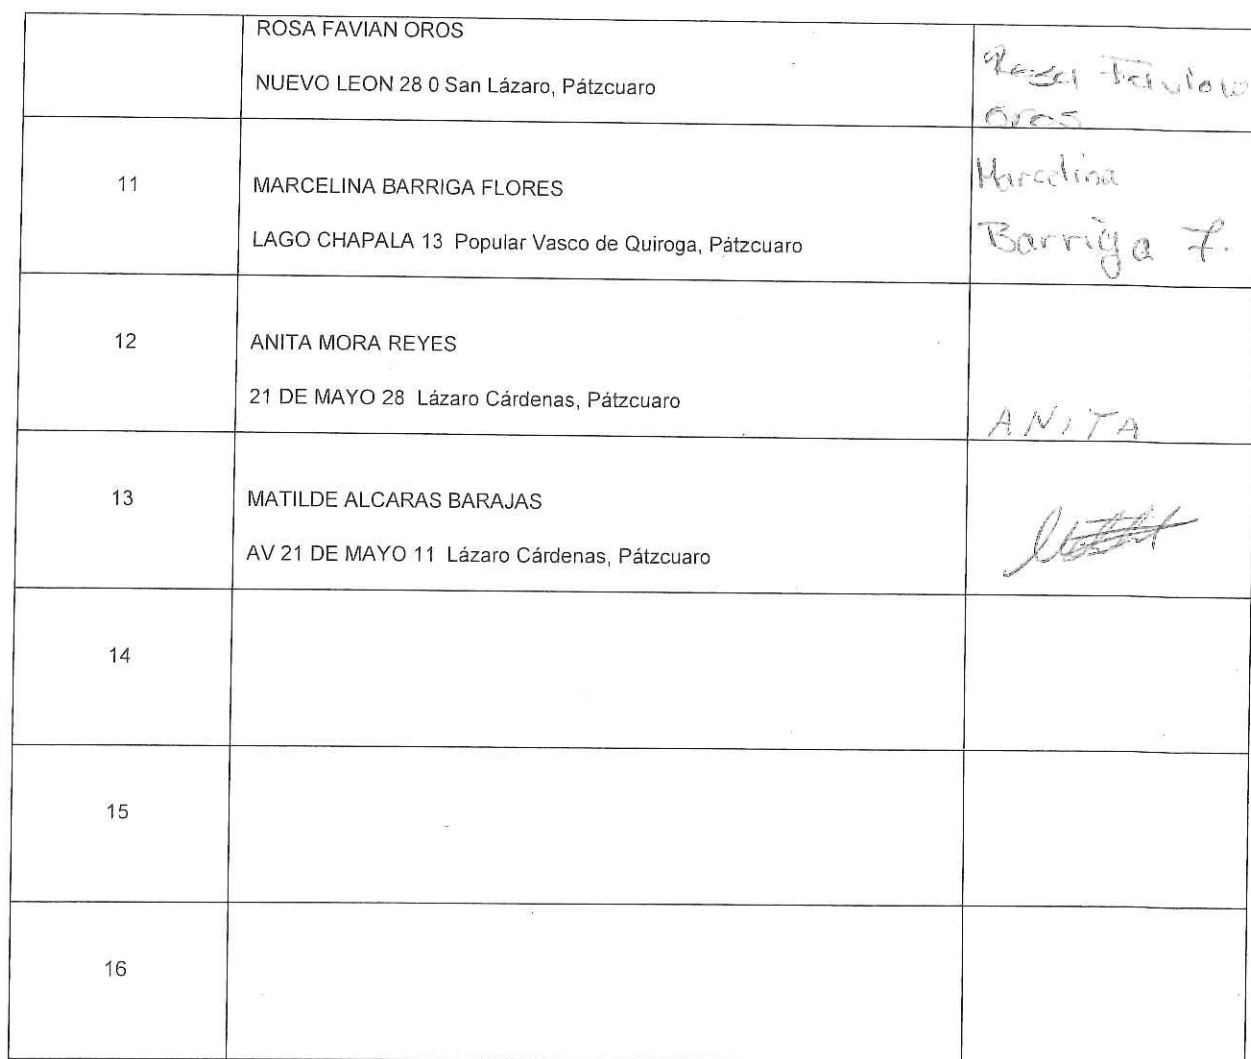 ROSA FAVIAN OROS
NUEVO LEON 28 0 San Lázaro, Pátzcuaro
Rosa Favian
Oros
11
MARCELINA BARRIGA FLORES
LAGO CHAPALA 13 Popular Vasco de Quiroga, Pátzcuaro
Marcelina
Barriga F.
12
ANITA MORA REYES
21 DE MAYO 28 Lázaro Cárdenas, Pátzcuaro
ANITA
13
MATILDE ALCARAS BARAJAS
AV 21 DE MAYO 11 Lázaro Cárdenas, Pátzcuaro
14
15
16